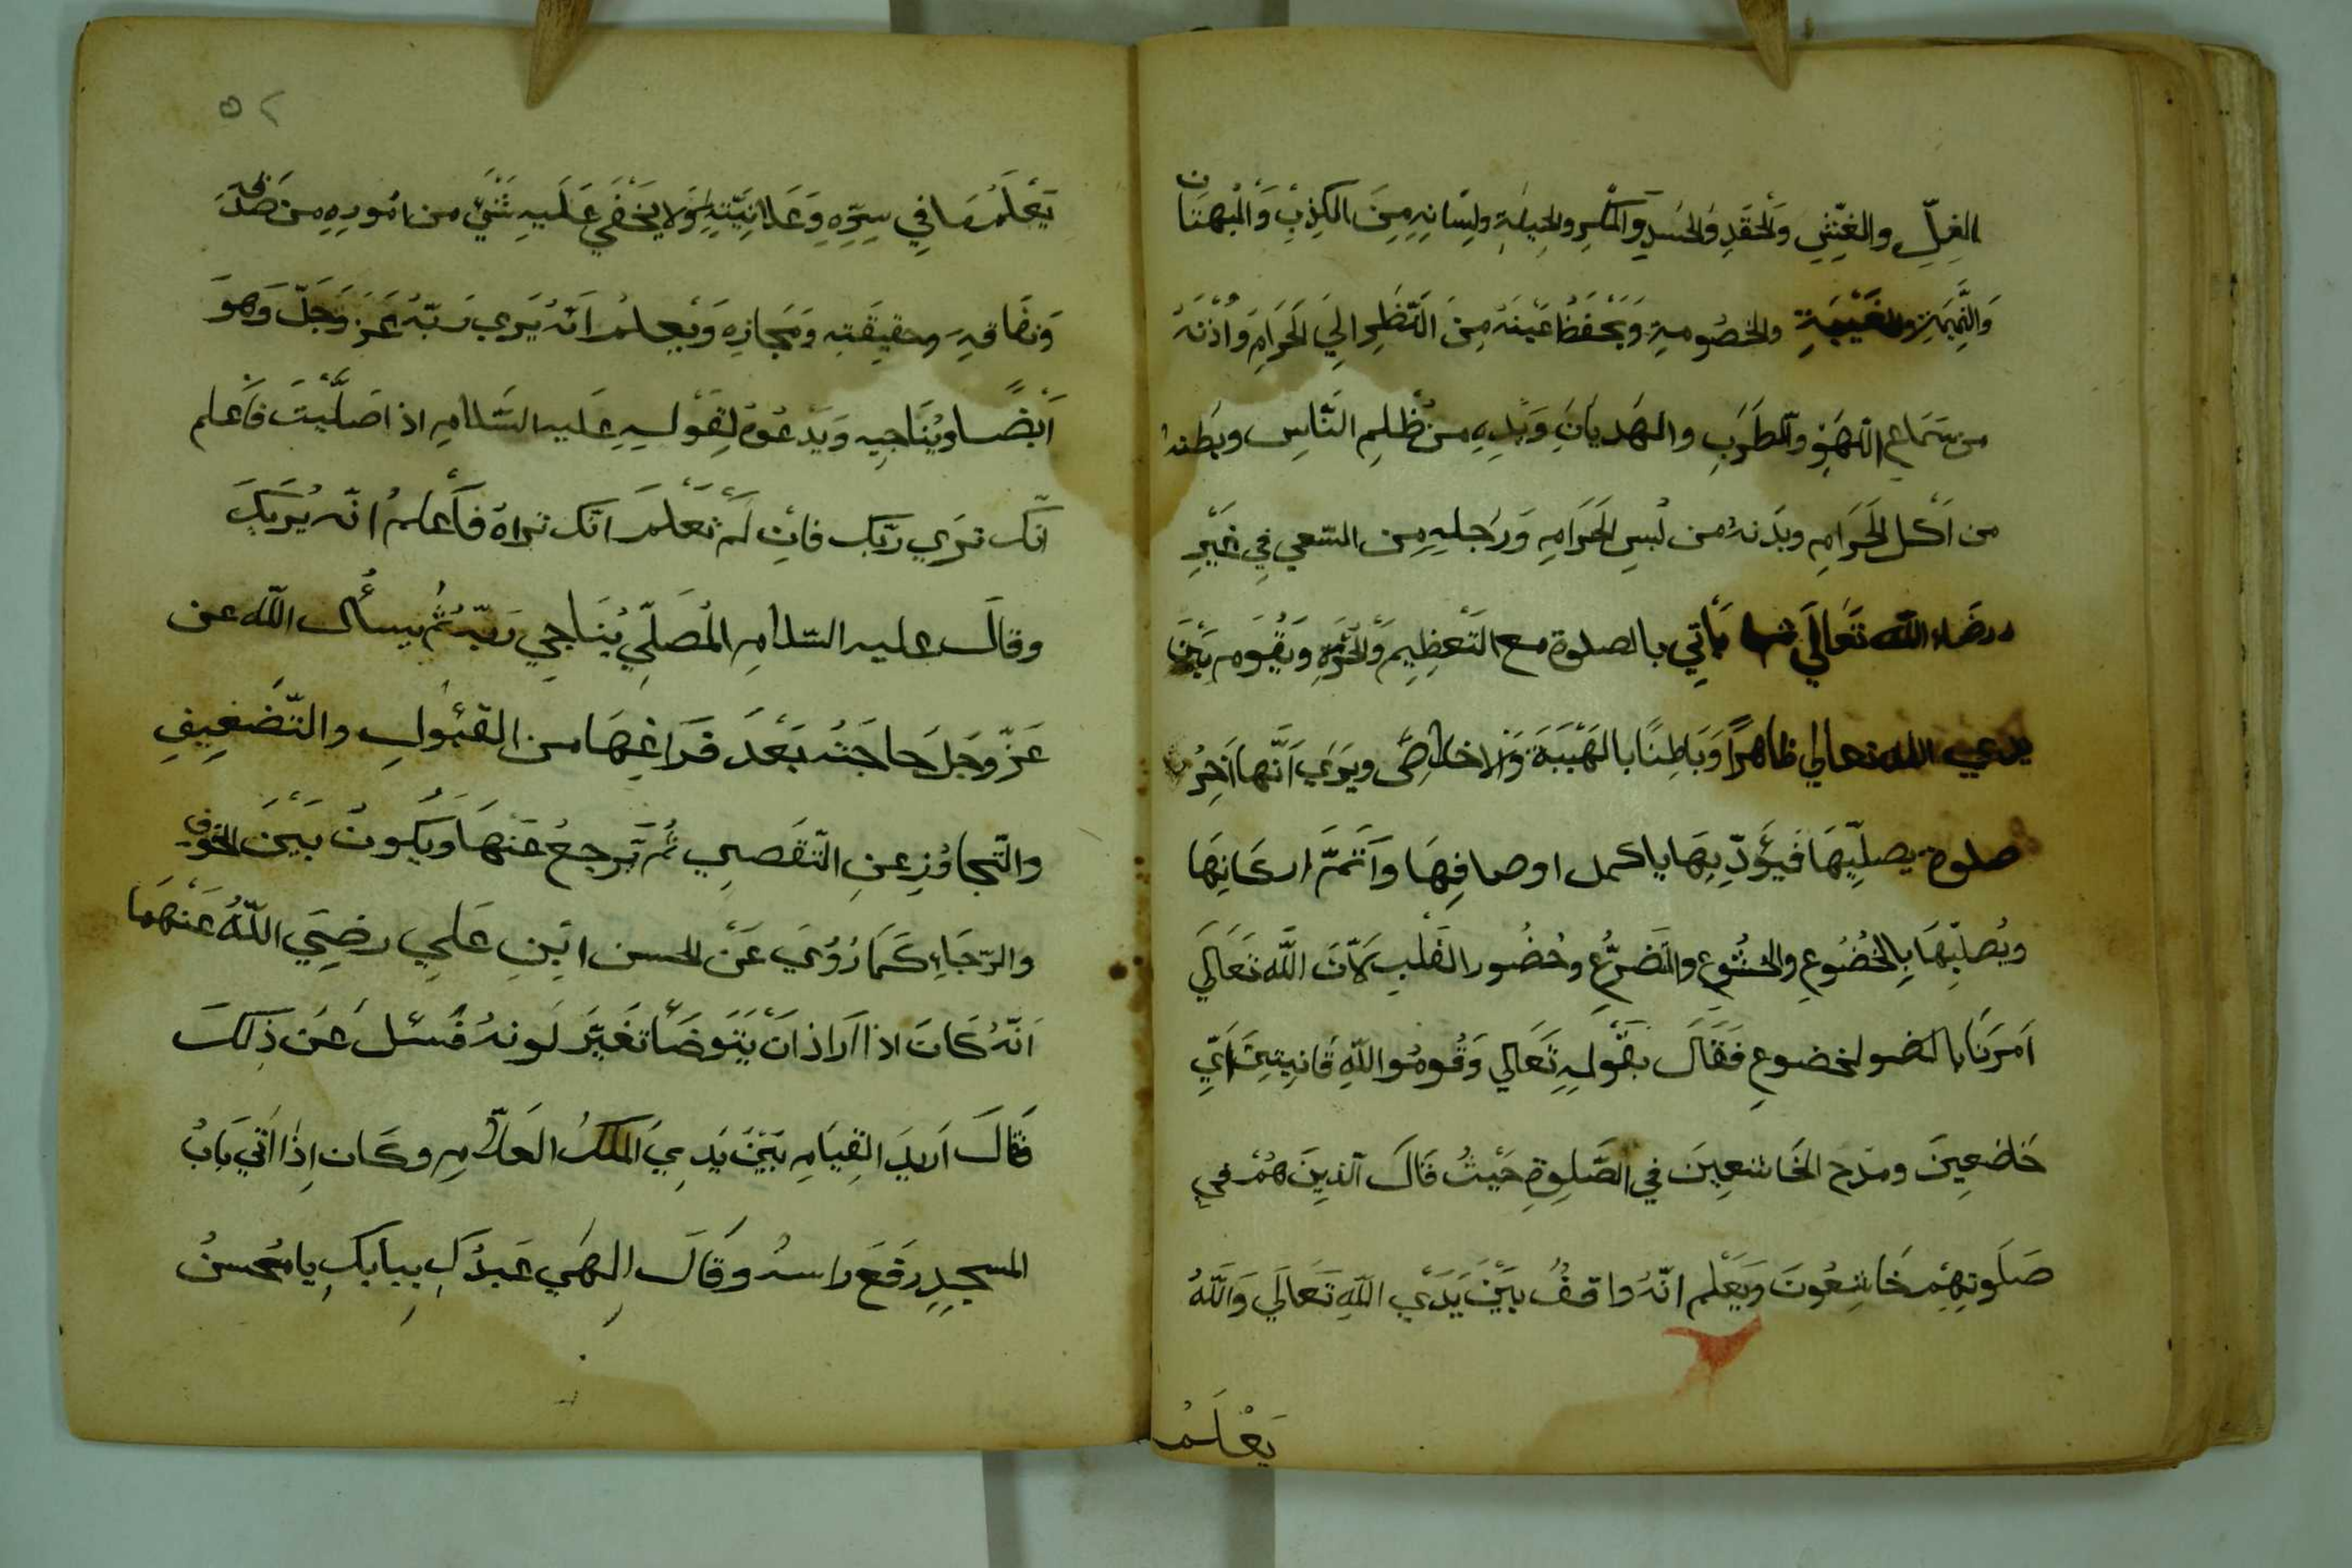 الغِلِّ والغِشِّ وَالْحَقَدِ وَالحَسَدِ وَالمَكْرِ والحِيلَةِ ولِسَانِهِ مِنَ الكِذِبِ وَالْبُهتَانِ
وَالنَّمِيمَةِ والغَيْبَةِ والخصُومةِ وَيَحْفَظُ عَيْنَهُ مِنَ النَّظَرِ الِي الحَرَامِ وَاُذْنَهُ
من سَمَاعِ اللَّهْوِ والطَّرَبِ والهَديَانِ وَيَدِهِ من ظُلمِ النَّاسِ وبَطنه
من اَكْلِ الحَرَامِ وبَدَنهُ من لُبسِ الحَرَامِ وَرَجلِهِ مِن السّعي فِي غَيْرِ
رضَاء اللّه تَعَالَي يَأتِي بالصلوة مع التَعْظِيمِ وَالحُرْمَةِ وَيَقُوم بَيْنَ
يدي الله تعالي ظاهرًا وَبَاطِنًا بالهَيْبَةَ وَالاخلاصِ ويَرَي اَنَّها اَخِرُ
صلوة يصلِّيهَا فَيُؤدّيهَا باكمل اوصافِهَا وَاَتَمّ اركَانِهَا
ويُصلِيّهَا بِالخُضُوعِ والخشُوعِ والتضَرُّعِ وحُضُور القَلبِ لاَنَّ اللَّه تَعَالَي
اَمَرَنَا بالخضوع فَقَالَ بقَوْلِهِ تَعَالي وَقُومُوا للّهِ قَانِتِينَ اَيِ
خَاضعِينَ ومدْح الخَاشعِينَ في الصَّلوةِ حَيْثُ قَالَ الذِينَ هُمْ فِي
صَلَوتِهِمْ خَاشِعُونَ وَيَعْلم انّهُ واقفُ بَيْنَ يَدَي اللّهِ تَعَالَي وَاللَّهُ
يَعْلَمُ
٥٢
يَعْلَمُ مَا فِي سِرِّهِ وَعَلَانِيَّتِهِ وَلا يَخْفَي عَلَيهِ شَيْءٌ من امُورِهِ من صَدقِهِ
وَنفَاقهِ وحقيقَتِهِ وَمَجازِهِ وَيعلمُ اَنّهُ يَرَي رَبّهُ عَزّ وَجَلّ وَهُوَ
اَيْضًا ويُنَاجِيهِ وَيَدعُوهُ لِقَوْلِهِ عَليه السَّلامِ اذا صَلَّيْتَ فَاَعلم
انّك تَرَي ربّك فَاِن لَمْ تَعْلَمَ انّك تراهُ فَاَعْلمُ انّه يُرَيكَ
وقالَ عليه السّلامِ الْمُصَلّي يُنَاجِي رَبّه ثُم يسأل اللّه عن
عَزّ وجَلّ حاجَتهُ بَعْدَ فَرَاغِهَا من القبُولِ والتّضعِيفِ
والتّجاوُزِ عنِ التّقَصِي ثُمَّ يَرجعُ عَنهَا وَيَكُونُ بَيْنَ الخَوْفِ
والرّجَاءِ كَمَا رُوِيَ عَنْ الحسن ابْنِ عَلي رضِيَ اللّهُ عَنْهُمَا
اَنّهُ كَانَ اذا اَرَاذ اَنْ يَتَوَضَّأ تغَيَّرَ لَونهُ فَسئلَ عَن ذَلِكَ
فَقَالَ اُريدُ القِيامِ بَيْنَ يَدِي المَلكُ العَلاَّمِ وكَان اِذَا اَتَي بَابُ
المسجدِ رَفَعَ راسهُ وَقَالَ اِلهَي عَبدُكَ ببابكِ يا مُحسنُ